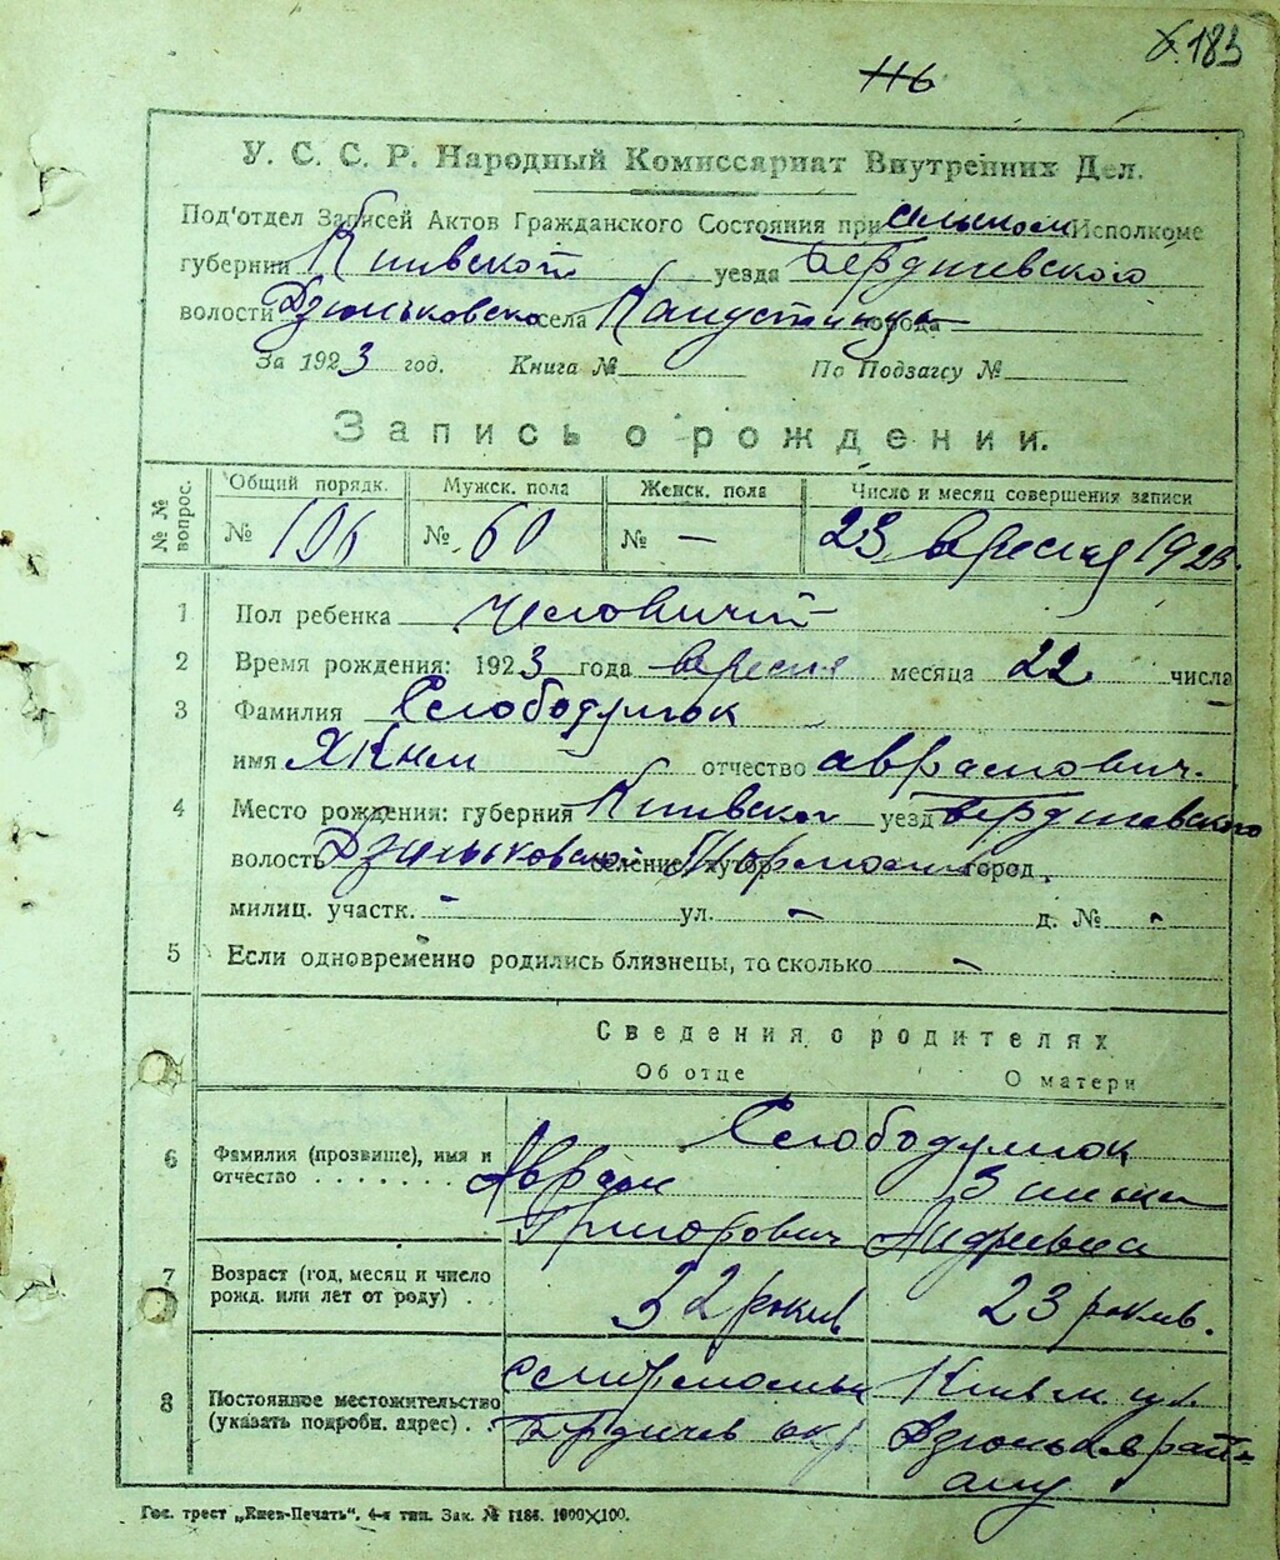 183
116
У. С. С. Р. Народный Комиссариат Внутренних Дел.
Под'отдел Записей Актов Гражданского Состояния при сільском Исполкоме
губернии Київской уезда Бердичевского
волости Дзюньковско села Капустинци города
За 1923 год. Книга № По Подзагсу №
Запись о рождении.
№ № вопрос. Общий порядк. Мужск. пола Женск. пола Число и месяц совершения записи
№ 106 № 60 № — 23 вересня 1923.
1 Пол ребенка Человічій
2 Время рождения: 1923 года вересня месяца 22 числа
3 Фамилия Слободынюк
имя Яким отчество аврамович.
4 Место рождения: губерния Київской уезд Бердичевского
волость Дзюньковской селение, хутор город
милиц. участк. - ул. - д. № -
5 Если одновременно родились близнецы, то сколько -
Сведения о родителях
Об отце О матери
6 Фамилия (прозвище), имя и отчество . . . . . . .
Аврам Григорович
Зінька Андріевна
7 Возраст (год, месяц и число рожд. или лет от роду) . .
32 років 23 років.
8 Постоянное местожительство (указать подробн. адрес) . .
Бердичев окр. Дзюньков рай-
ону
Гос. трест „Киев-Печать", 4-я тип. Зак. № 1186. 1000×100.